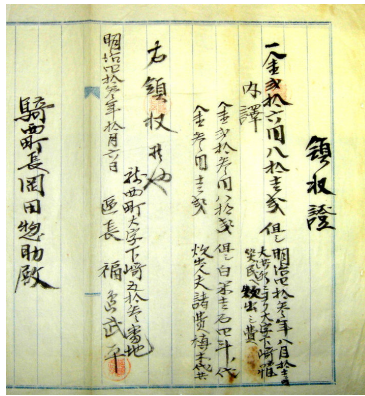 領収證
一金弐拾六円八拾壱銭 但シ明治四拾参年八月
大字下崎罹
災民ヘ焚出シ費
内譯
金弐拾参円八拾銭 但シ白米壱石四斗代
金参円壱銭 炊出丈諸費
右領収候也
騎西町大字下崎五拾参番地
明治四拾参年拾月六日 区長 福島武平
騎西町長岡田惣助殿